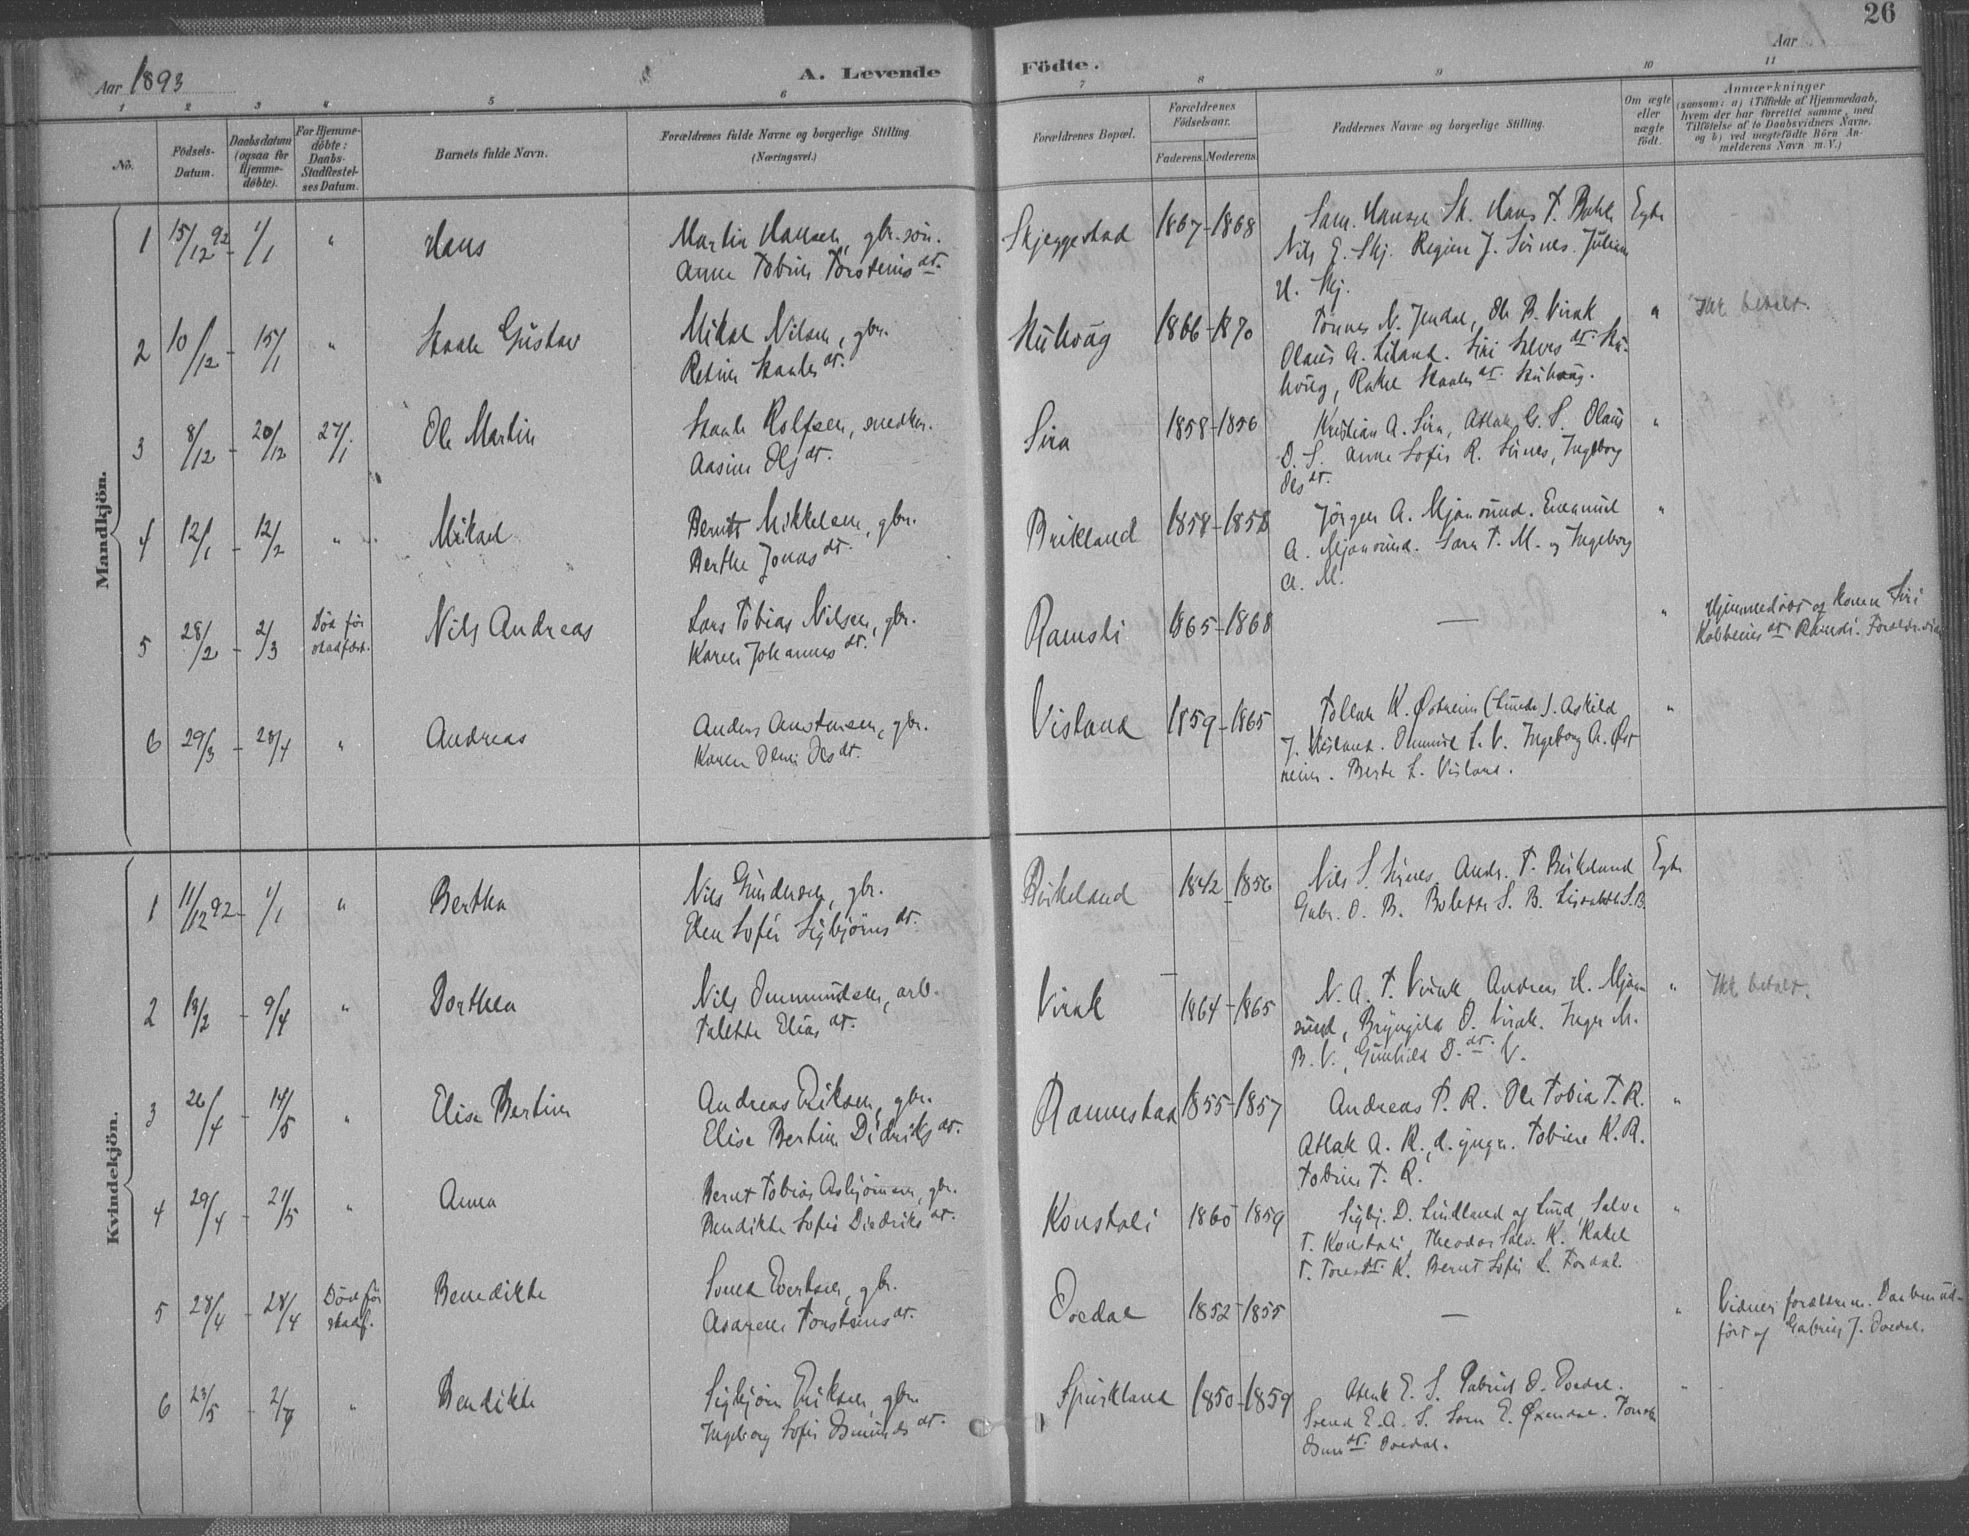 26
Aar 1893
A. Levende
Födte.
Aar
1 2 3 4 5 6 7 8 9 10 11
Nö.
Födsels-
Datum.
Daabsdatum
(ogsaa for
Hjemme-
döbte).
For Hjemme-
döbte:
Daabs-
Stadfæstel-
ses Datum.
Barnets fulde Navn.
Forældrenes fulde Navne og borgerlige Stilling
(Næringsvei.)
Forældrenes Bopæl.
Forældrenes
Födselsaar.
Faderens. Moderens.
Faddernes Navne og borgerlige Stilling.
Om ægte
eller
uægte
födt.
Anmærkninger
(saasom: a) i Tilfælde af Hjemmedaab,
hvem der har forrettet samme, med
Tilföielse af to Daabsvidners Navne,
og b) ved uægtefödte Börn An-
melderens Navn m. V.)
Mandkjön.
1 15/12 92 - 1/1 " Hans
Martin Hansen, gbr. sön.
Anne Tobine Torsteins dt.
Skjeggestad 1867 - 1868
Sam. Hansen Sk. Hans T. Bakke
Nils E. Skj. Regine J. Sirnes. Juliane
H. Skj.
Egte
2 10/12 - 15/1 " Staale Gustav
Mikal Nilsen, gbr.
Retine Staales dt.
1866 - 1870
Tönnes N. Ole B. Virak
Olaus A. Siri Salves dt.
Rakel Staales dt.
" Ikke betalt.
3 8/12 - 20/12 27/1 Ole Martin
Staale Rolfsen, snedker.
Aasine Ols dt.
Sira 1858 - 1856
Kristian A. Sira, Atlak G. S. Olaus
O. S. Anne Sofie R. Sirnes, Ingeborg
Ols dt.
"
4 12/1 - 12/2 " Mikael
Berndt Mikkelsen, gbr.
Berthe Jonas dt.
Birkland 1858 - 1858
Jörgen A. Mjaasund. Emanuel
A. Mjaasund. Sara T. M. og Ingeborg
A. M.
"
5 28/2 - 2/3 Död för
stadfæst. Nils Andreas
Lars Tobias Nilsen, gbr.
Karen Johannes dt.
Ramsli 1865 - 1868 —
" Hjemmedöbt af Konen Siri
Kolbeins dt. Ramsli.
6 29/3 - 28/4 " Andreas
Anders Aanstensen, gbr.
Karen Ols dt.
Visland 1859 - 1865
Tollak K. Östreim (Lunde). Askild
J. Visland. Omund L. V. Ingeborg A. Öst
reim. Berte L. Visland.
"
Kvindekjön.
1 11/12 92 - 1/1 " Bertha
Nils Gundersen, gbr.
Elen Sofie Sigbjörns dt.
Birkeland 1842 - 1856
Nils S. Sirnes, Andr. T. Birkeland
Gabr. O. B. Bolette S. B. Lisabeth S. B.
Egte
2 13/2 - 9/4 " Dorthea
Nils Ommundsen, arb.
Talette Elias dt.
Virak 1864 - 1865
N. A. T. Virak Andreas H. Mjaa
sund, Bryngild O. Virak. Inger M.
B. V., Gunhild O. dt. V.
" Ikke betalt.
3 26/4 - 14/5 " Elise Bertine
Andreas Eriksen, gbr.
Elise Bertine Didriks dt.
1855 - 1857
Andreas P. R. Ole Tobias T. R.
Atlak A. R., d. yngr. Tobine K. R.
Tobine T. R.
"
4 29/4 - 21/5 " Anna
Bernt Tobias Asbjörnsen, gbr.
Bendikte Sofie Diedriks dt.
Konstali 1860 - 1859
Sigbj. D. Lindland og Lund, Salve
T. Konstali, Theodor Salv. K. Rakel
T. Tores dt. K. Bernt Sofie L.
"
5 28/4 - 28/4 Död för
stadf. Benedikte
Svend Evertsen, gbr.
Aasarene Torsteins dt.
Ovedal 1852 - 1855 —
" Vidner forældrene. Daaben ud-
fört af Gabriel J. Ovedal.
6 23/5 - 2/7 " Bendikte
Sigbjörn Eriksen, gbr.
Ingeborg Sofie Osmunds dt.
Spirkland 1850 - 1859
Atlak E. S. Gabriel O. Ovedal.
Svend E. A. S. Sara E. Öxendal.
dt. Ovedal.
"